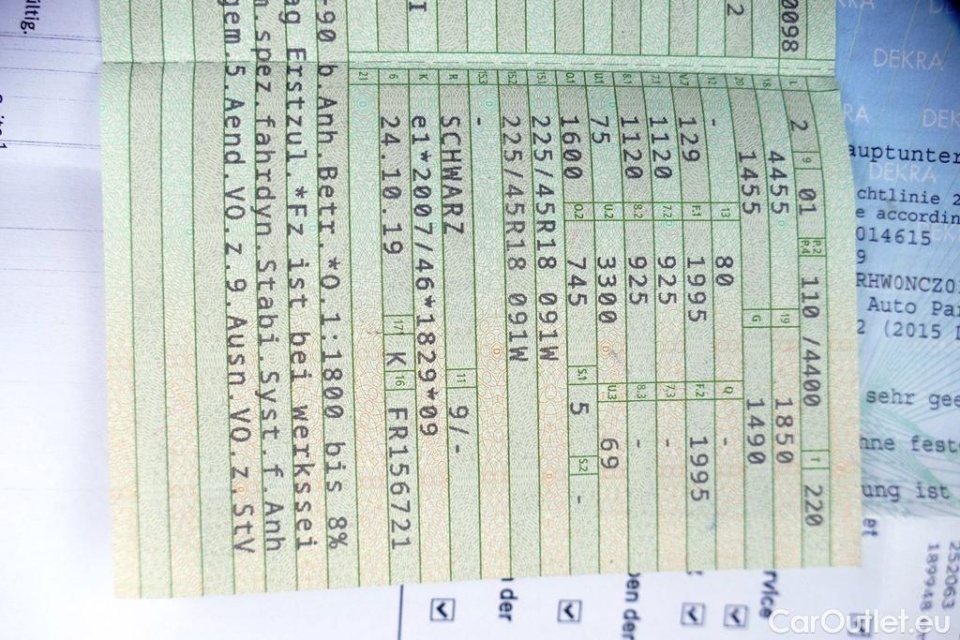 0098
L 2 9 01 P.2 P.4 110 /4400 T 220
18 4455 19 1850
20 1455 G 1490
2
12 - 13 80 Q -
V.7 129 F.1 1995 F.2 1995
7.1 1120 7.2 925 7.3 -
8.1 1120 8.2 925 8.3 -
U.1 75 U.2 3300 U.3 69
O.1 1600 O.2 745 S.1 5 S.2 -
15.1 225/45R18 091W
15.2 225/45R18 091W
15.3 -
R SCHWARZ 11 9/-
K e1*2007/46*1829*09
6 24.10.19 17 K 16 FR156721
21
-90 b.Anh.Betr.*O.1:1800 bis 8%
ag Erstzul.*Fz ist bei werkssei
m.spez.fahrdyn.Stabi.Syst.f.Anh
gem.5.Aend.VO.z.9.Ausn.VO.z.StV
I
ültig.
DEKRA
DEKRA
DEKRA
auptunter
chtlinie 2
e accordin
014615
9
RHWONCZ0
Auto Pa
2 (2015 D
sehr gee
hne fest
ung ist
et
252063
189948
ervice
ben der
n der
CarOutlet.eu